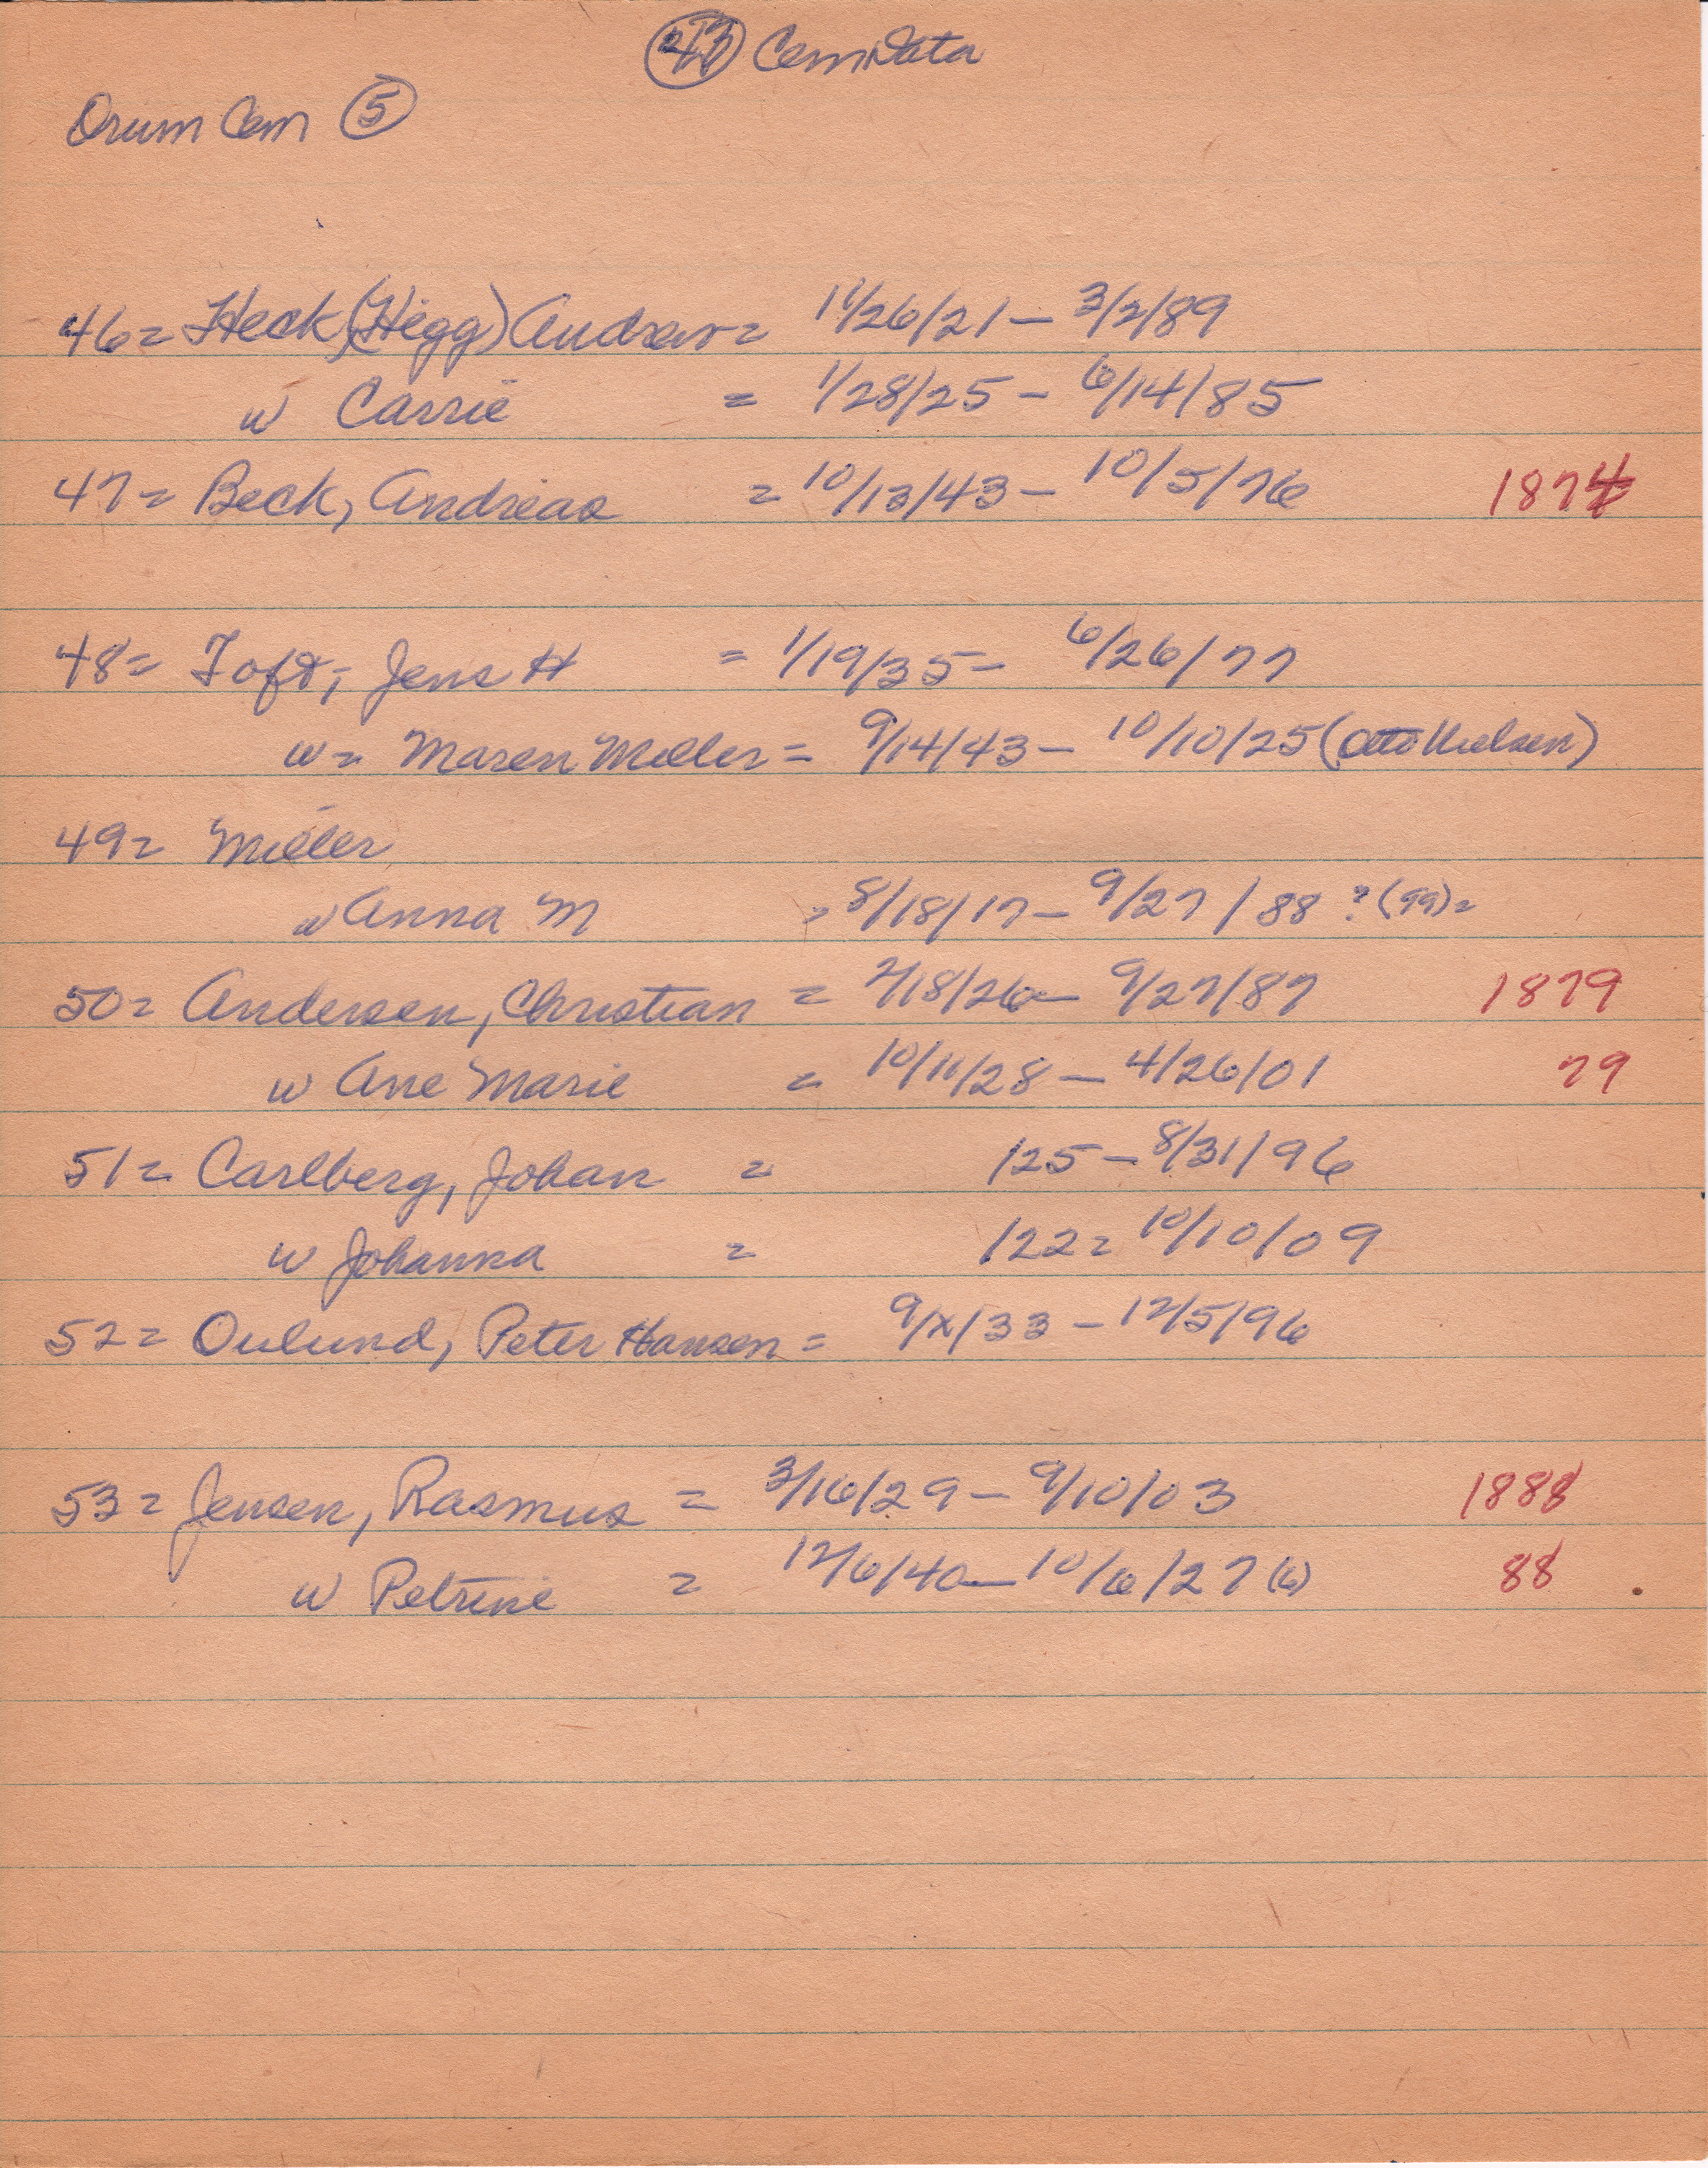 Cem Data
Orum Cem 5
46= Heck (Higg) Andrew= 11/26/21 - 3/2/89
w Carrie = 1/28/25 - 6/14/85
47= Beck, Andreas = 10/13/43 - 10/5/76 1874
48= Toft, Jens H = 1/19/35 - 6/26/77
w= Maren Miller = 9/14/43 - 10/10/25 (Otto Nielsen)
49= Miller
w Anna M = 8/18/17 - 9/27/88 ? (99)=
50= Andersen, Christian = 2/18/26 - 9/27/87 1879
w Ane Marie = 10/11/28 - 4/26/01 79
51= Carlberg, Johan = /25 - 8/31/96
w Johanna = /22= 10/10/09
52= Oulund, Peter Hansen = 9/x/33 - 12/5/96
53= Jensen, Rasmus = 3/16/29 - 9/10/03 1888
w Petrine = 12/6/40 - 10/6/27 (6) 88